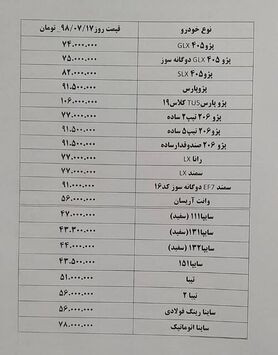 نوع خودرو قیمت روز۹۸/۰۷/۱۷_ تومان
پژو۴۰۵ GLX ۷۴.۰۰۰.۰۰۰
پژو ۴۰۵ GLX دوگانه سوز ۷۵.۰۰۰.۰۰۰
پژو۴۰۵ SLX ۸۲.۰۰۰.۰۰۰
پژوپارس ۹۱.۵۰۰.۰۰۰
پژو پارسTU5 کلاس۱۹ ۱۰۶.۰۰۰.۰۰۰
پژو ۲۰۶ تیپ۲ ساده ۷۷.۰۰۰.۰۰۰
پژو ۲۰۶ تیپ۵ ساده ۹۱.۵۰۰.۰۰۰
پژو ۲۰۶ صندوقدارساده ۹۱.۵۰۰.۰۰۰
رانا LX ۷۷.۰۰۰.۰۰۰
سمند LX ۷۷.۰۰۰.۰۰۰
سمند EF7 دوگانه سوز کد۱۶ ۹۱.۰۰۰.۰۰۰
وانت آریسان ۵۶.۰۰۰.۰۰۰
سایپا۱۱۱ (سفید) ۴۷.۰۰۰.۰۰۰
سایپا۱۳۱ (سفید) ۴۳.۳۰۰.۰۰۰
سایپا۱۳۲ (سفید) ۴۴.۰۰۰.۰۰۰
سایپا۱۵۱ ۴۳.۵۰۰.۰۰۰
تیبا ۵۱.۰۰۰.۰۰۰
تیبا ۲ ۵۶.۰۰۰.۰۰۰
ساینا رینگ فولادی ۵۶.۰۰۰.۰۰۰
ساینا اتوماتیک ۷۸.۰۰۰.۰۰۰